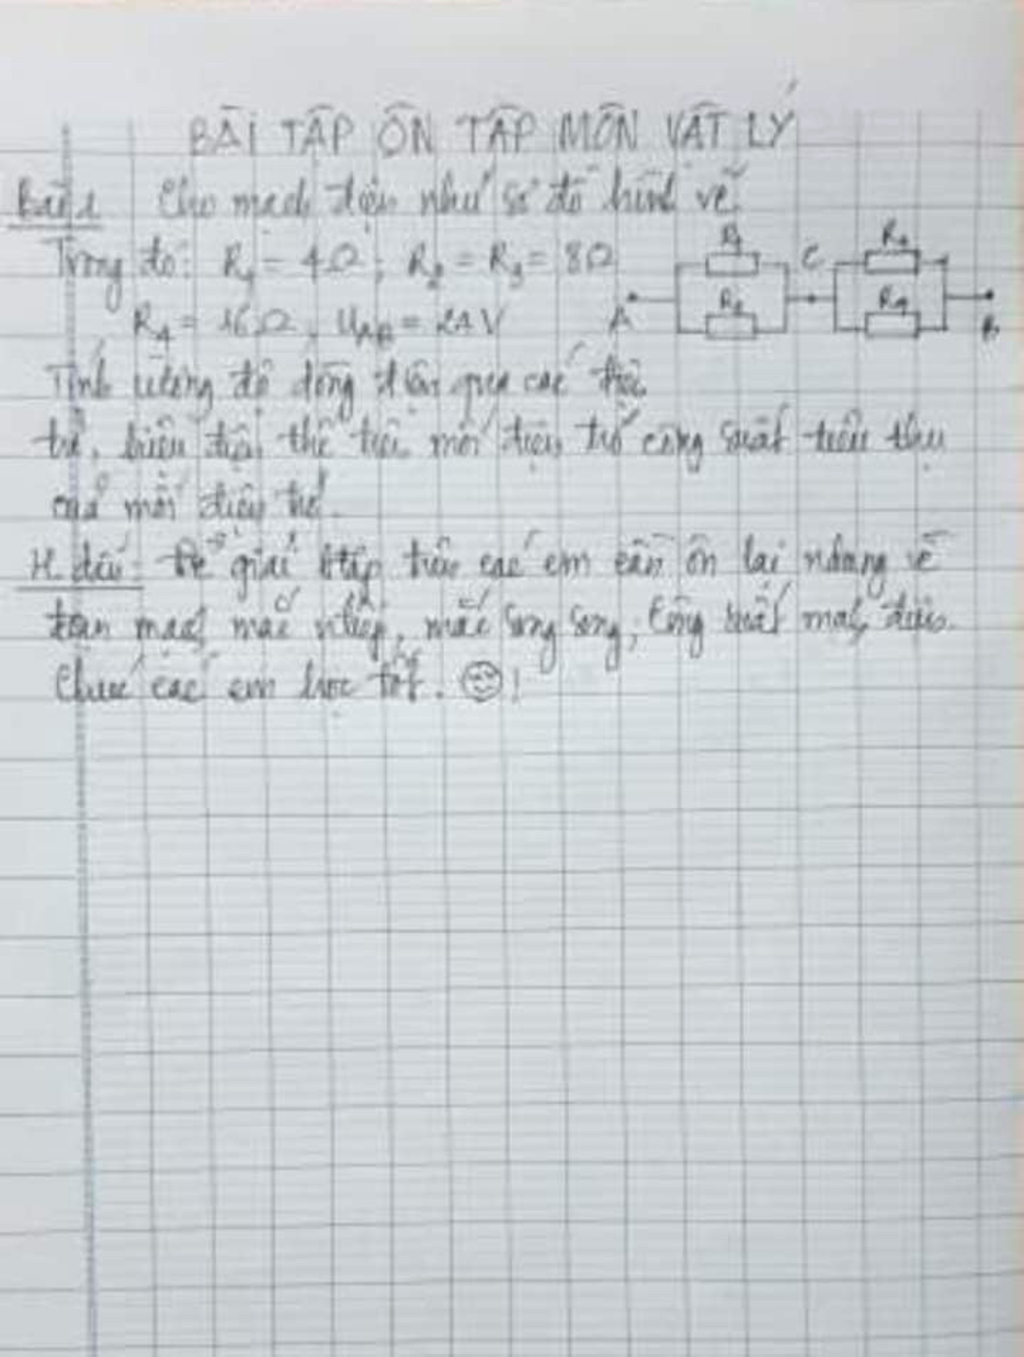 BÀI TẬP ÔN TẬP MÔN VẬT LÝ
Bài 1 Cho mạch điện như sơ đồ hình vẽ
Trong đó: R1 = 4Ω; R2 = R3 = 8Ω
R4 = 16Ω, UAB =
R1
R2
C
R3
R4
A
B
Tính cường độ dòng điện qua các điện
trở, hiệu điện thế trên mỗi điện trở công suất tiêu thụ
của mỗi điện trở.
H. dẫn: Để giải btập trên các em cần ôn lại về
đoạn mạch mắc ntiếp, mắc song song, công suất mạch điện.
Chúc các em học tốt. !